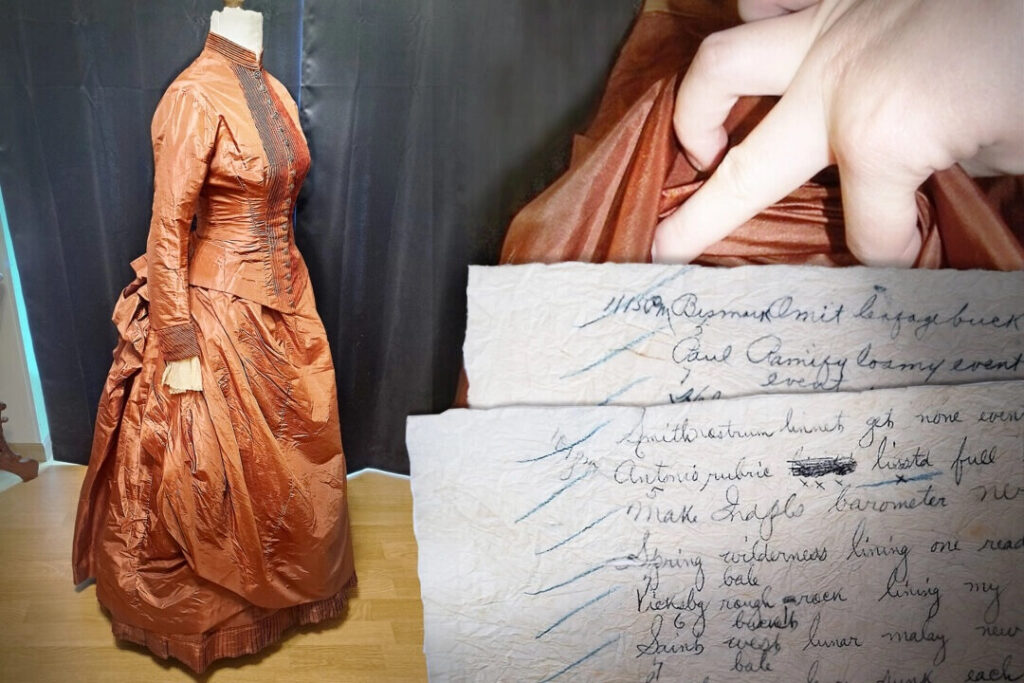 1113PM Bismark Omit leafage buck
Paul Ramify loamy event
event
Smith nostrum linnet get none event
Antonio rubric lissta full
x x x x
5
Make Indpls barometer
Spring wilderness lining one read
7 bale
Vicksbg rough rack lining my
6 bucket
Saints west lunar malay new
7 bale
each